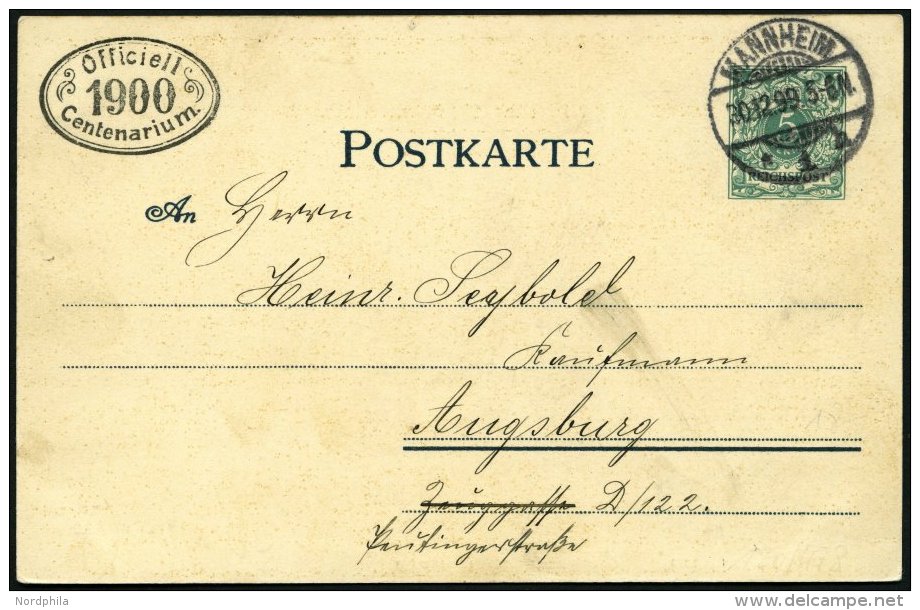 Officiell
1900
Centenarium.
MANNHEIM
30.12.99. 5-6N.
* 1 h
5
REICHSPOST
POSTKARTE
An Herrn
Heinr. Seybold
Kaufmann
Augsburg
Zeuggasse D/122.
Peutingerstraße
Nordphila
delcampe.net